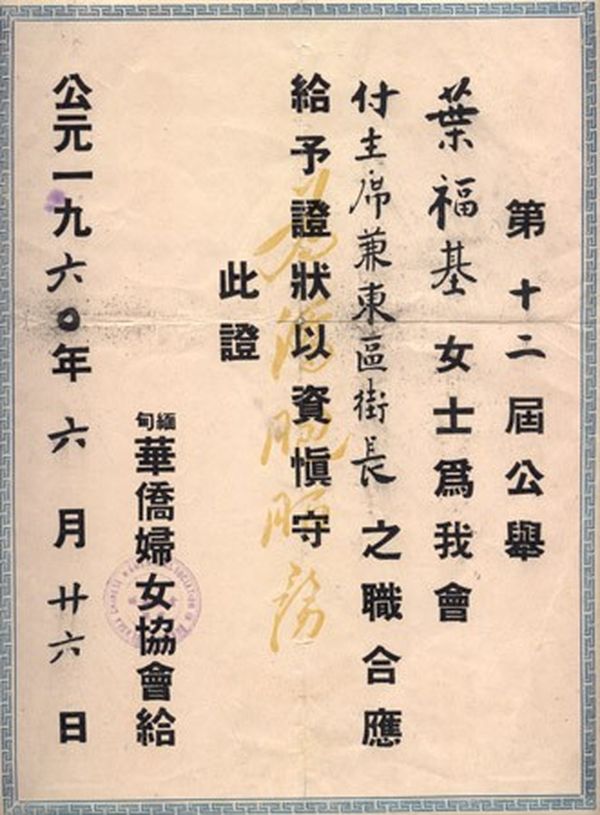 第十二屆公舉
葉福基女士爲我會
付主席兼東區街長之職合應
給予證狀以資愼守
為僑胞服務
此證
緬甸華僑婦女協會給
公元一九六〇年六月廿六日
CHINESE ASSOCIATION